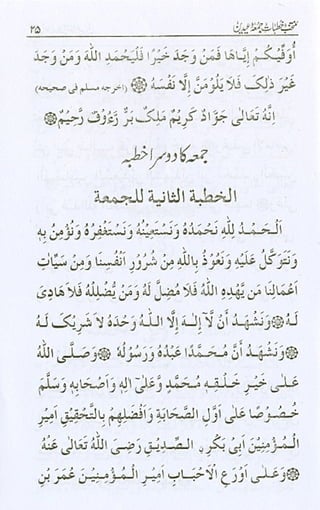 منتخب خطبات جمعہ و عیدین ۲۵
أُوَفِّيْكُمْ إِيَّاهَا فَمَنْ وَجَدَ خَيْرًا فَلْيَحْمَدِ اللّٰهَ وَمَنْ وَجَدَ
غَيْرَ ذٰلِكَ فَلَا يَلُوْمَنَّ إِلَّا نَفْسَهُ ۞ (اخرجه مسلم فى صحيحه)
اِنَّهُ تَعَالٰى جَوَّادٌ كَرِيْمٌ مَلِكٌ بَرٌّ رَءُوْفٌ رَّحِيْمٌ ۞
جمعہ کا دوسرا خطبہ
الخطبة الثانية للجمعة
اَلْحَمْدُ لِلّٰهِ نَحْمَدُهُ وَنَسْتَعِيْنُهُ وَنَسْتَغْفِرُهُ وَنُؤْمِنُ بِهٖ
وَنَتَوَكَّلُ عَلَيْهِ وَنَعُوْذُ بِاللّٰهِ مِنْ شُرُوْرِ اَنْفُسِنَا وَمِنْ سَيِّاٰتِ
اَعْمَالِنَا مَن يَّهْدِهِ اللّٰهُ فَلَا مُضِلَّ لَهُ وَمَنْ يُّضْلِلْهُ فَلَا هَادِيَ
لَهُ ۞ وَنَشْهَدُ اَنْ لَّا اِلٰهَ اِلَّا اللّٰهُ وَحْدَهُ لَا شَرِيْكَ لَهُ
۞ وَنَشْهَدُ اَنَّ مُحَمَّدًا عَبْدُهُ وَرَسُوْلُهُ ۞ وَصَلَّى اللّٰهُ
عَلٰى خَيْرِ خَلْقِهٖ مُحَمَّدٍ وَّعَلٰى اٰلِهٖ وَاَصْحَابِهٖ وَسَلَّمَ
خُصُوْصًا عَلٰى اَوَّلِ الصَّحَابَةِ وَاَفْضَلِهِمْ بِالتَّحْقِيْقِ اَمِيْرِ
الْمُؤْمِنِيْنَ اَبِىْ بَكْرِ ۨ الصِّدِّيْقِ رَضِىَ اللّٰهُ تَعَالٰى عَنْهُ
۞ وَعَلٰى اَوْرَعِ الْاَحْبَابِ اَمِيْرِ الْمُؤْمِنِيْنَ عُمَرَ بْنِ